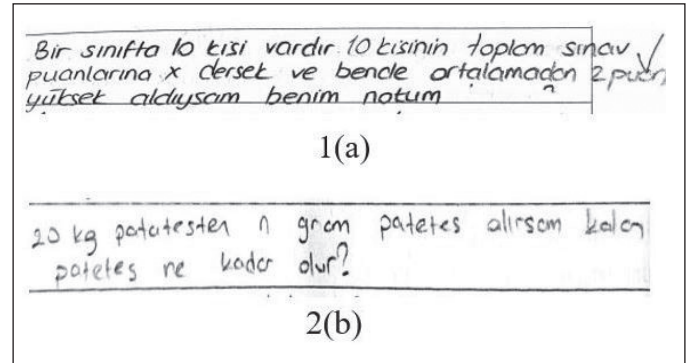 Bir sınıfta 10 kişi vardır. 10 kişinin toplam sınav
puanlarına x dersek ve bende ortalamadan 2 puan
yüksek aldıysam benim notum ?
1(a)
20 kg patatesten n gram patates alırsam kalan
patates ne kadar olur?
2(b)